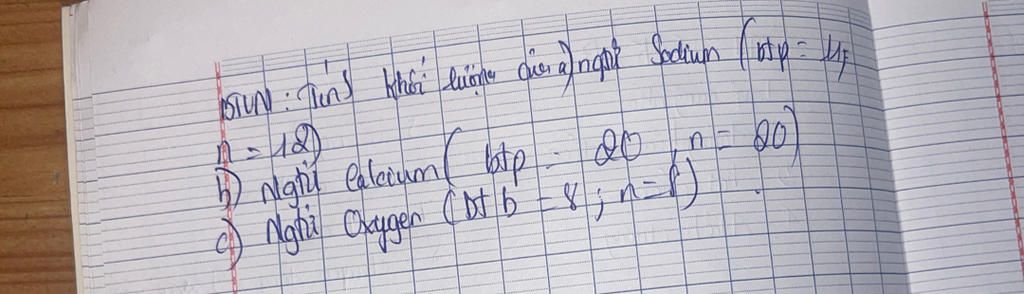 BTVN: Tính khối lượng của a) ngtử Sodium (btp = 11;
n = 12)
b) Ngtử Calcium (btp = 20, n = 20)
c) Ngtử Oxygen (bt b = 8; n = 8)